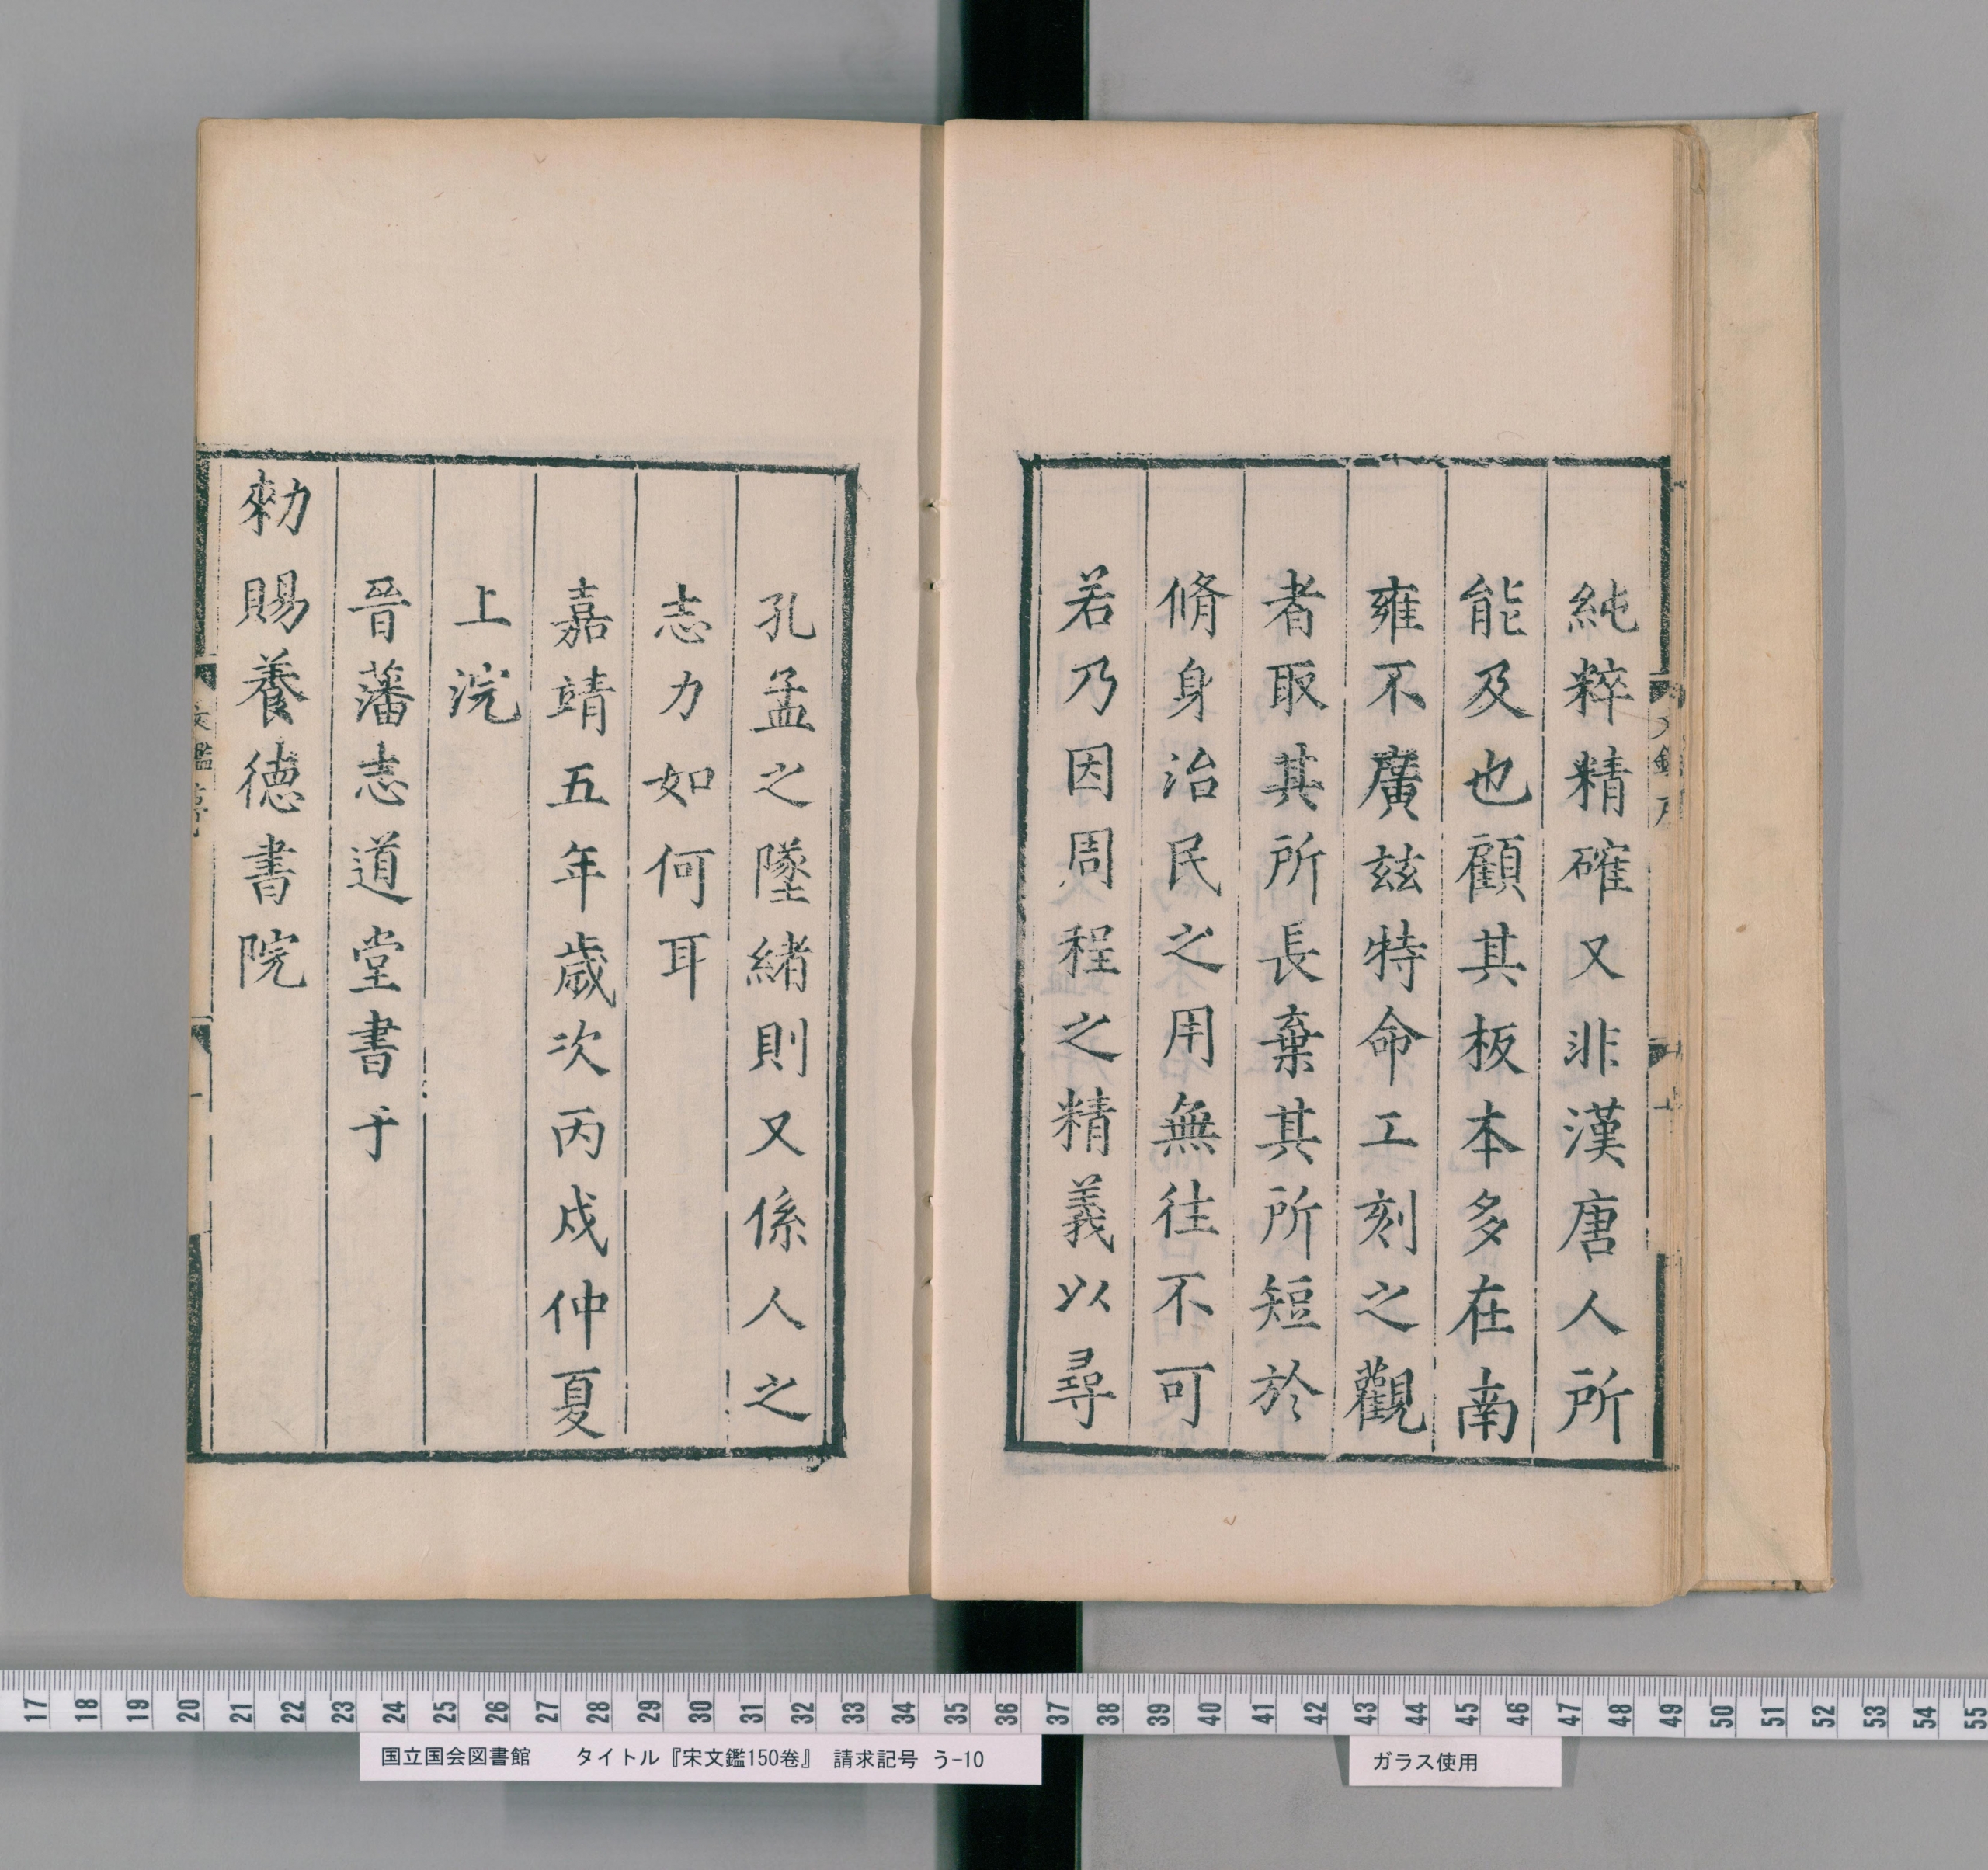 純粹精確又非漢唐人所
能及也顧其板本多在南
雍不廣玆特命工刻之觀
者取其所長棄其所短於
脩身治民之用無徃不可
若乃因周程之精義以尋
孔孟之墜緒則又係人之
志力如何耳
嘉靖五年歲次丙戌仲夏
上浣
晉藩志道堂書于
勑賜養德書院
17 18 19 20 21 22 23 24 25 26 27 28 29 30 31 32 33 34 35 36 37 38 39 40 41 42 43 44 45 46 47 48 49 50 51 52 53 54 55
国立国会図書館 タイトル『宋文鑑150巻』 請求記号 う-10
ガラス使用